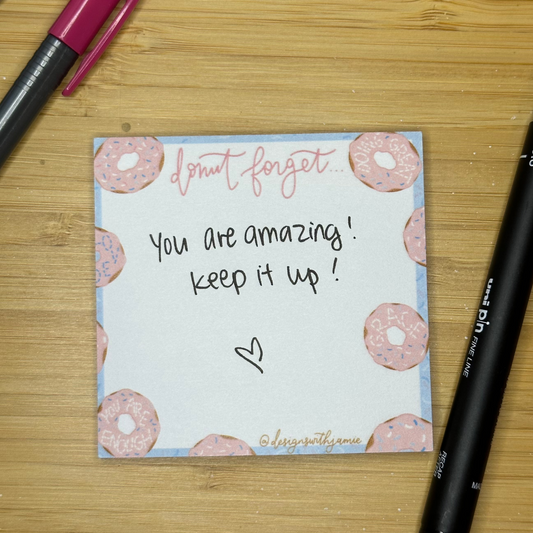 donut forget...
You are amazing!
keep it up!
YOU ARE
ENOUGH
@designswithjamie
uni pin FINE LINE